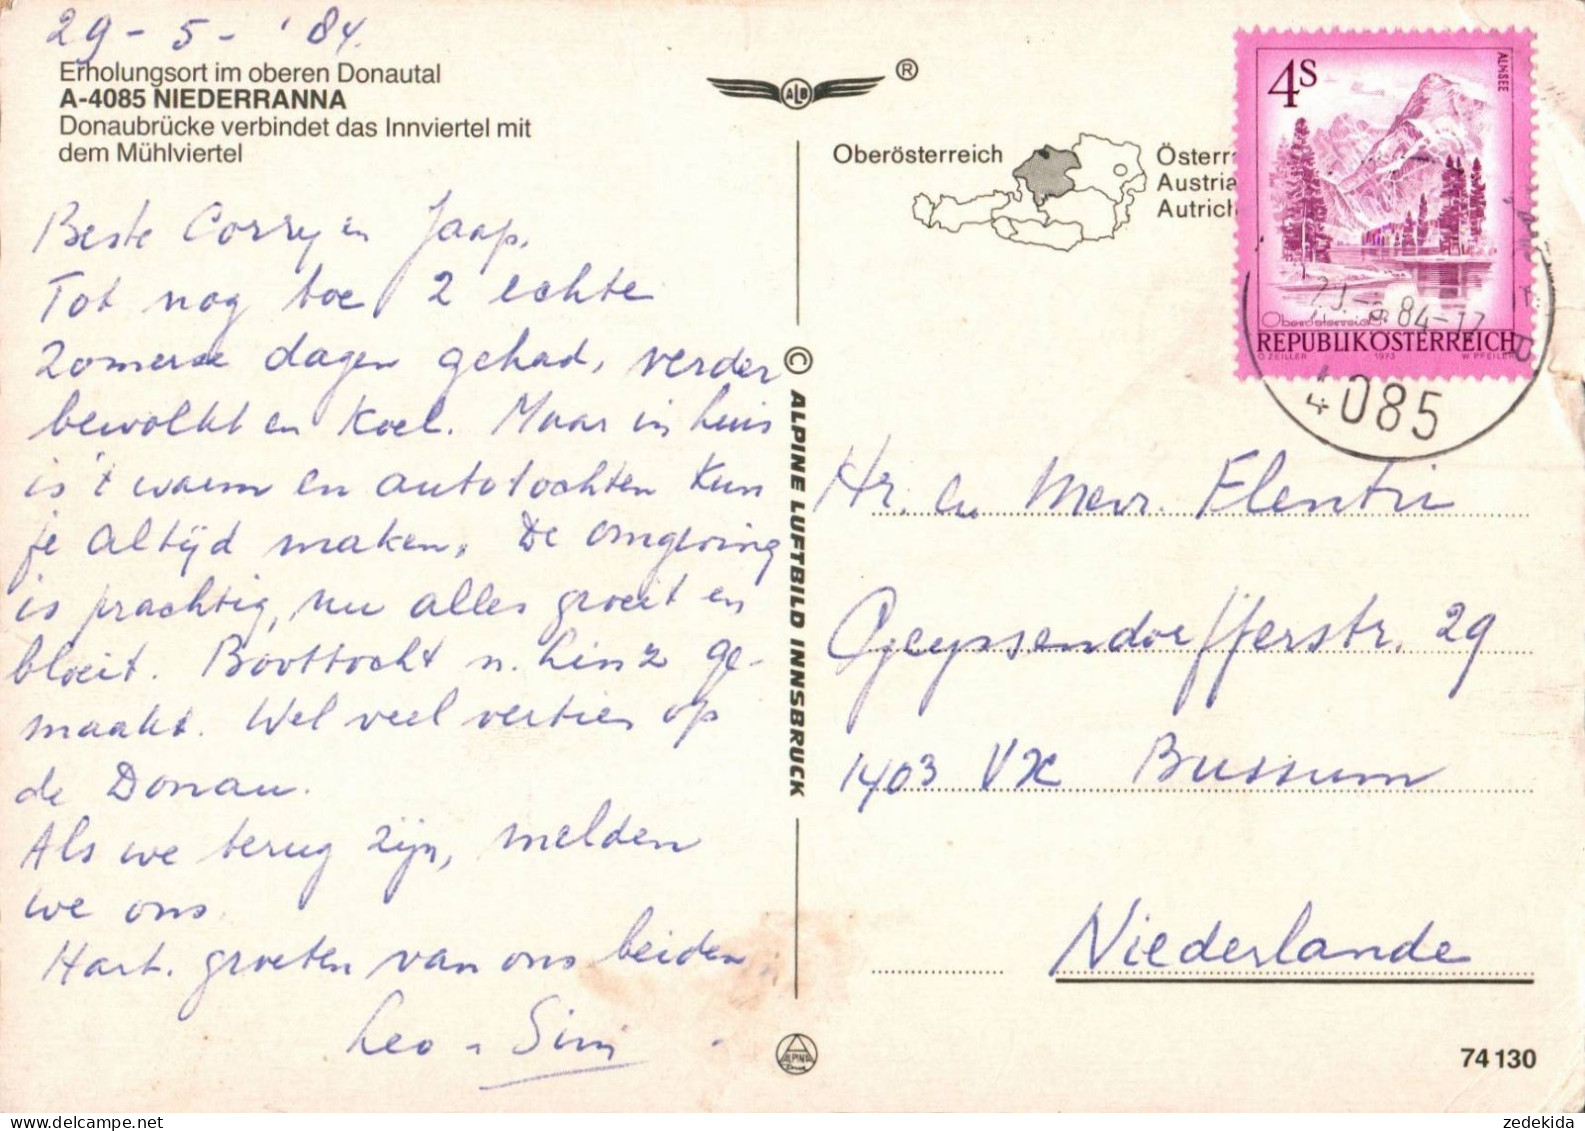 29-5-'84.
Erholungsort im oberen Donautal
A-4085 NIEDERRANNA
Donaubrücke verbindet das Innviertel mit
dem Mühlviertel
Beste Corry en Jaap,
Tot nog toe 2 echte
zomerse dagen gehad, verder
bewolkt en koel. Maar in huis
is 't warm en autotochten kun
je altijd maken. De omgeving
is prachtig, nu alles groeit en
bloeit. Boottocht n. Linz ge-
maakt. Wel veel vertier op
de Donau.
Als we terug zijn, melden
we ons.
Hart. groeten van ons beiden
Leo - Sini
© ALPINE LUFTBILD INNSBRUCK
ALB ®
Oberösterreich
Österr
Austria
Autrich
4S
ALMSEE
Oberösterreich
REPUBLIK ÖSTERREICH
O. ZEILER 1973 W. PFEILER
84-17
4085
Hr. en Mevr. Flentri
Geyssendorfferstr. 29
1403 VX Bussum
Niederlande
ALPINA
74 130
zedekida